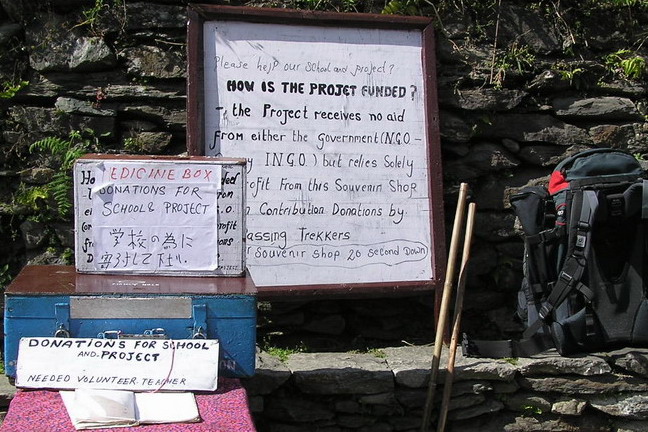 Please help our School and project?
HOW IS THE PROJET FUNDED?
- the Project receives no aid
From either the government (N.G.O -
I.N.G.O.) but relies Solely
rofit From this Souvenir Shop
Contribution Donations by.
assing Trekkers
Souvenir Shop 20 Second Down
EDICINE BOX
DONATIONS FOR
SCHOOL & PROJECT
学校の為に
して下さい.
DONATIONS FOR SCHOOL
AND PROJECT
NEEDED VOLUNTEER TEACHER